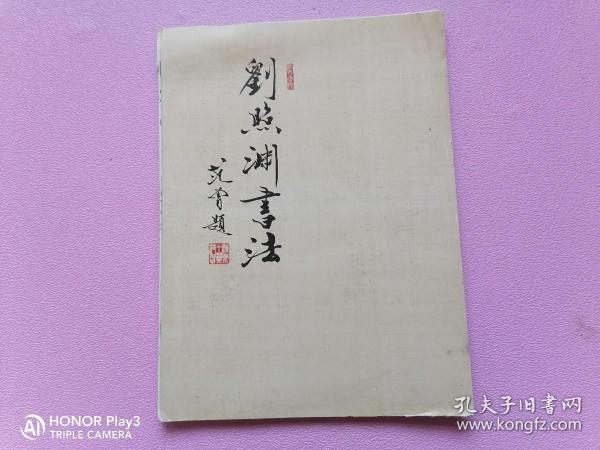 劉照淵書法
范曾題
HONOR Play3
TRIPLE CAMERA
孔夫子旧書网
www.kongfz.com